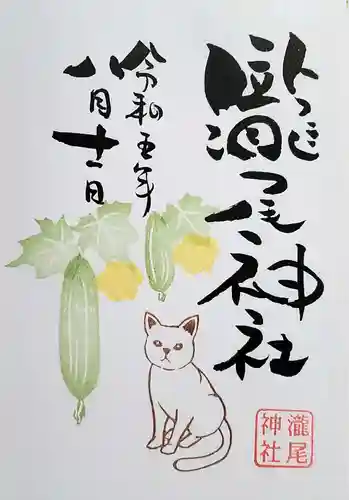 臥龍
瀧尾神社
令和五年
八月十一日
瀧尾
神社